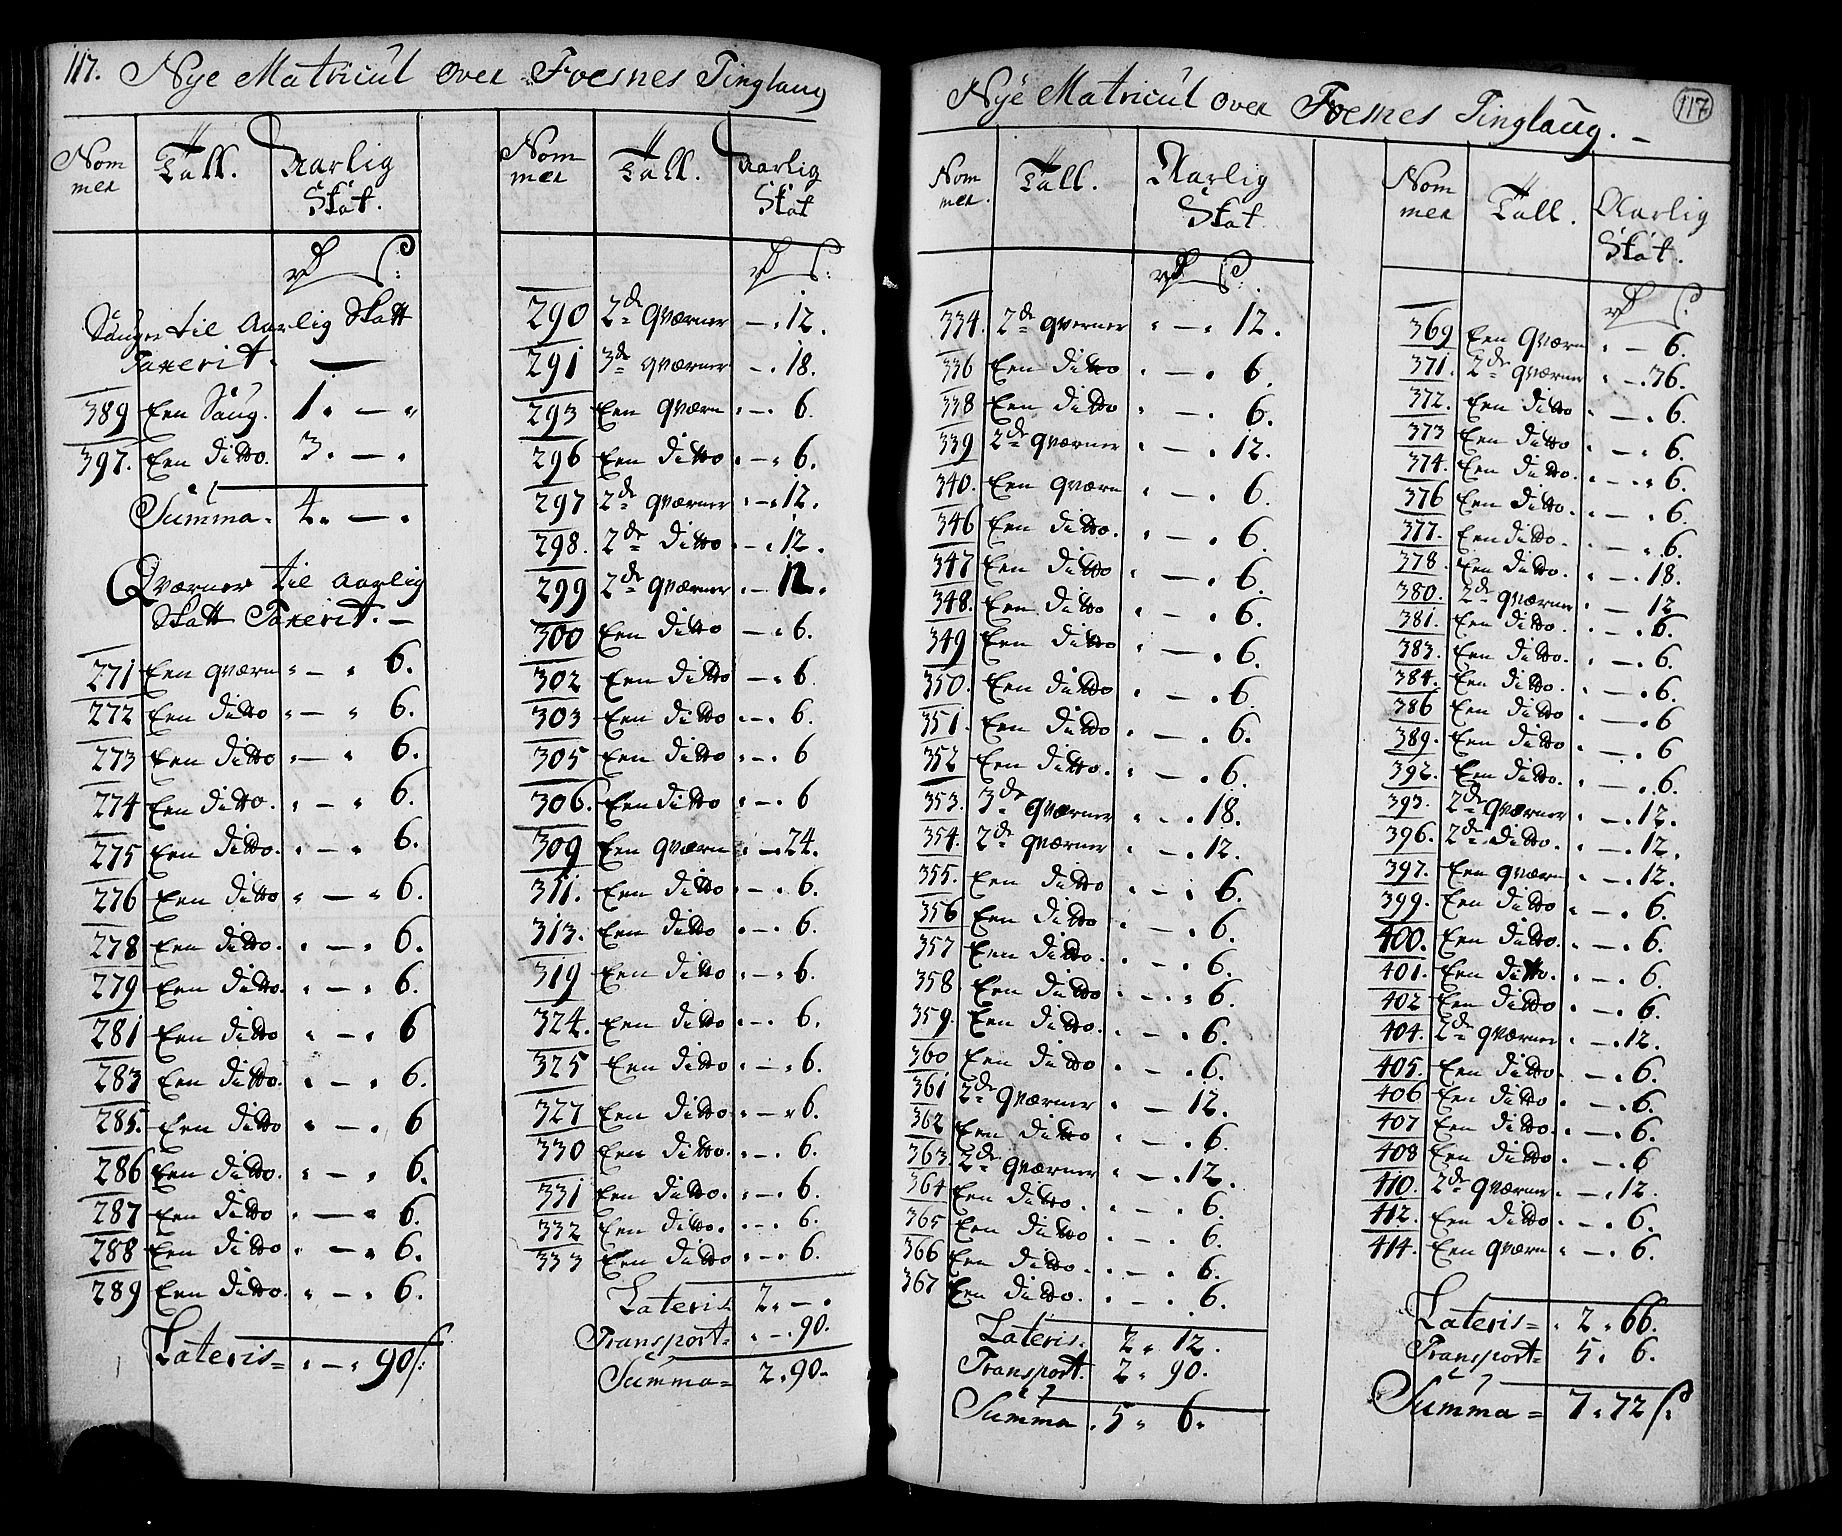 117. Nye Matricul over Foesnes Tinglaug
Nommer Tall. Aarlig Skat.
rd s:
Sauger til Aarlig Skatt
Taxerit. —
389 Een Saug. 1. — "
397. Een ditto. 3. — .
Summa. 4. — .
Qværner til aarlig
Skatt Taxerit. —
271 Een qværn " — " 6.
272 Een ditto " — " 6.
273 Een ditto " — " 6.
274 Een ditto. " — " 6.
275 Een ditto. " — " 6.
276 Een ditto " — " 6.
278 Een ditto. " — " 6.
279 Een ditto. " — " 6.
281 Een ditto " — " 6
283 Een ditto. " — " 6.
285. Een ditto " — " 6
286 Een ditto. " — " 6.
287 Een ditto " — " 6.
288 Een ditto " — " 6.
289 Een ditto. " — " 6.
Lateris = " — " 90 s:
Nommer Tall. Aarlig Skat
rd s:
290 2de qværner — . 12.
291 3de qværner — . 18.
293 Een qværn . — . 6.
296 Een ditto . — . 6.
297 2de qværner . — . 12.
298. 2de ditto . — . 12.
299 2de qværner . — 12.
300 Een ditto — . 6.
302 Een ditto — . 6.
303 Een ditto . — . 6.
305 Een ditto . — . 6
306. Een ditto . — . 6
309 Een qværn . — . 24.
311. Een ditto . — . 6.
313. Een ditto . — . 6.
319 Een ditto . — . 6.
324. Een ditto . — . 6.
325 Een ditto . — . 6.
327 Een ditto . — " 6.
330 Een ditto. . — . 6.
331 Een ditto. . — . 6.
332 Een ditto. . — . 6.
333 Een ditto . — . 6.
Lateris 2. — .
Transport = . — . 90.
Summa = 2. 90.
Nye Matricul over Foesnes Tinglaug. —
117
Nommer. Tall. Aarlig Skat.
rd s:
334. 2de qværner . — . 12.
336 Een ditto . — . 6.
338 Een ditto . — . 6.
339 2de qværner . — . 12.
340. Een qværn . — . 6.
346 Een ditto. . — . 6.
347 Een ditto . — . 6.
348. Een ditto . — . 6.
349 Een ditto . — . 6.
350. Een ditto . — . 6.
351. Een ditto . — . 6.
352 Een ditto. . — . 6.
353. 3de qværner . — . 18.
354. 2de qværner . — . 12.
355. Een ditto . — . 6.
356 Een ditto . — . 6.
357 Een ditto. . — . 6.
358 Een ditto . — . 6.
359. Een ditto. . — . 6.
360 Een ditto . — . 6.
361 2de qværner . — 12.
362 Een ditto . — . 6.
363 2de qværner . — . 12.
364 Een ditto. . — . 6.
365 Een ditto . — . 6.
366 Een ditto . — . 6.
367 Een ditto. . — . 6.
Lateris = 2. 12.
Transport. 2. 90.
Summa . 5. 6.
Nommer Tall. Aarlig Skat.
rd s.
369 Een qværn . — 6.
371. 2de qværner . — . 36.
372. Een ditto . — . 6.
373 Een ditto . — . 6.
374. Een ditto. . — . 6.
376 Een ditto. . — . 6.
377. Een ditto. . — . 6.
378. Een ditto. . — . 18.
380. 2de qværner . — 12
381. Een ditto. . — . 6.
383. Een ditto. . — . 6.
384. Een ditto. . — . 6.
386 Een ditto . — . 6
389. Een ditto . — . 6
392. Een ditto. . — . 6.
393. 2de qværner . — . 12.
396. 2de ditto. . — . 12.
397. Een qværn . — . 12.
399. Een ditto . — . 6.
400. Een ditto. . — . 6.
401. Een ditto. . — . 6.
402 Een ditto . — . 6.
404. 2de qværner . — . 12.
405. Een ditto. . — . 6.
406 Een ditto. . — . 6.
407 Een ditto. . — . 6.
408 Een ditto . — . 6
410. 2de qværner. . — . 12.
412. Een ditto . — . 6.
414. Een qværn . — . 6.
Lateris = . 2. 66.
Transport = 5. 6.
Summa = 7. 72 s: